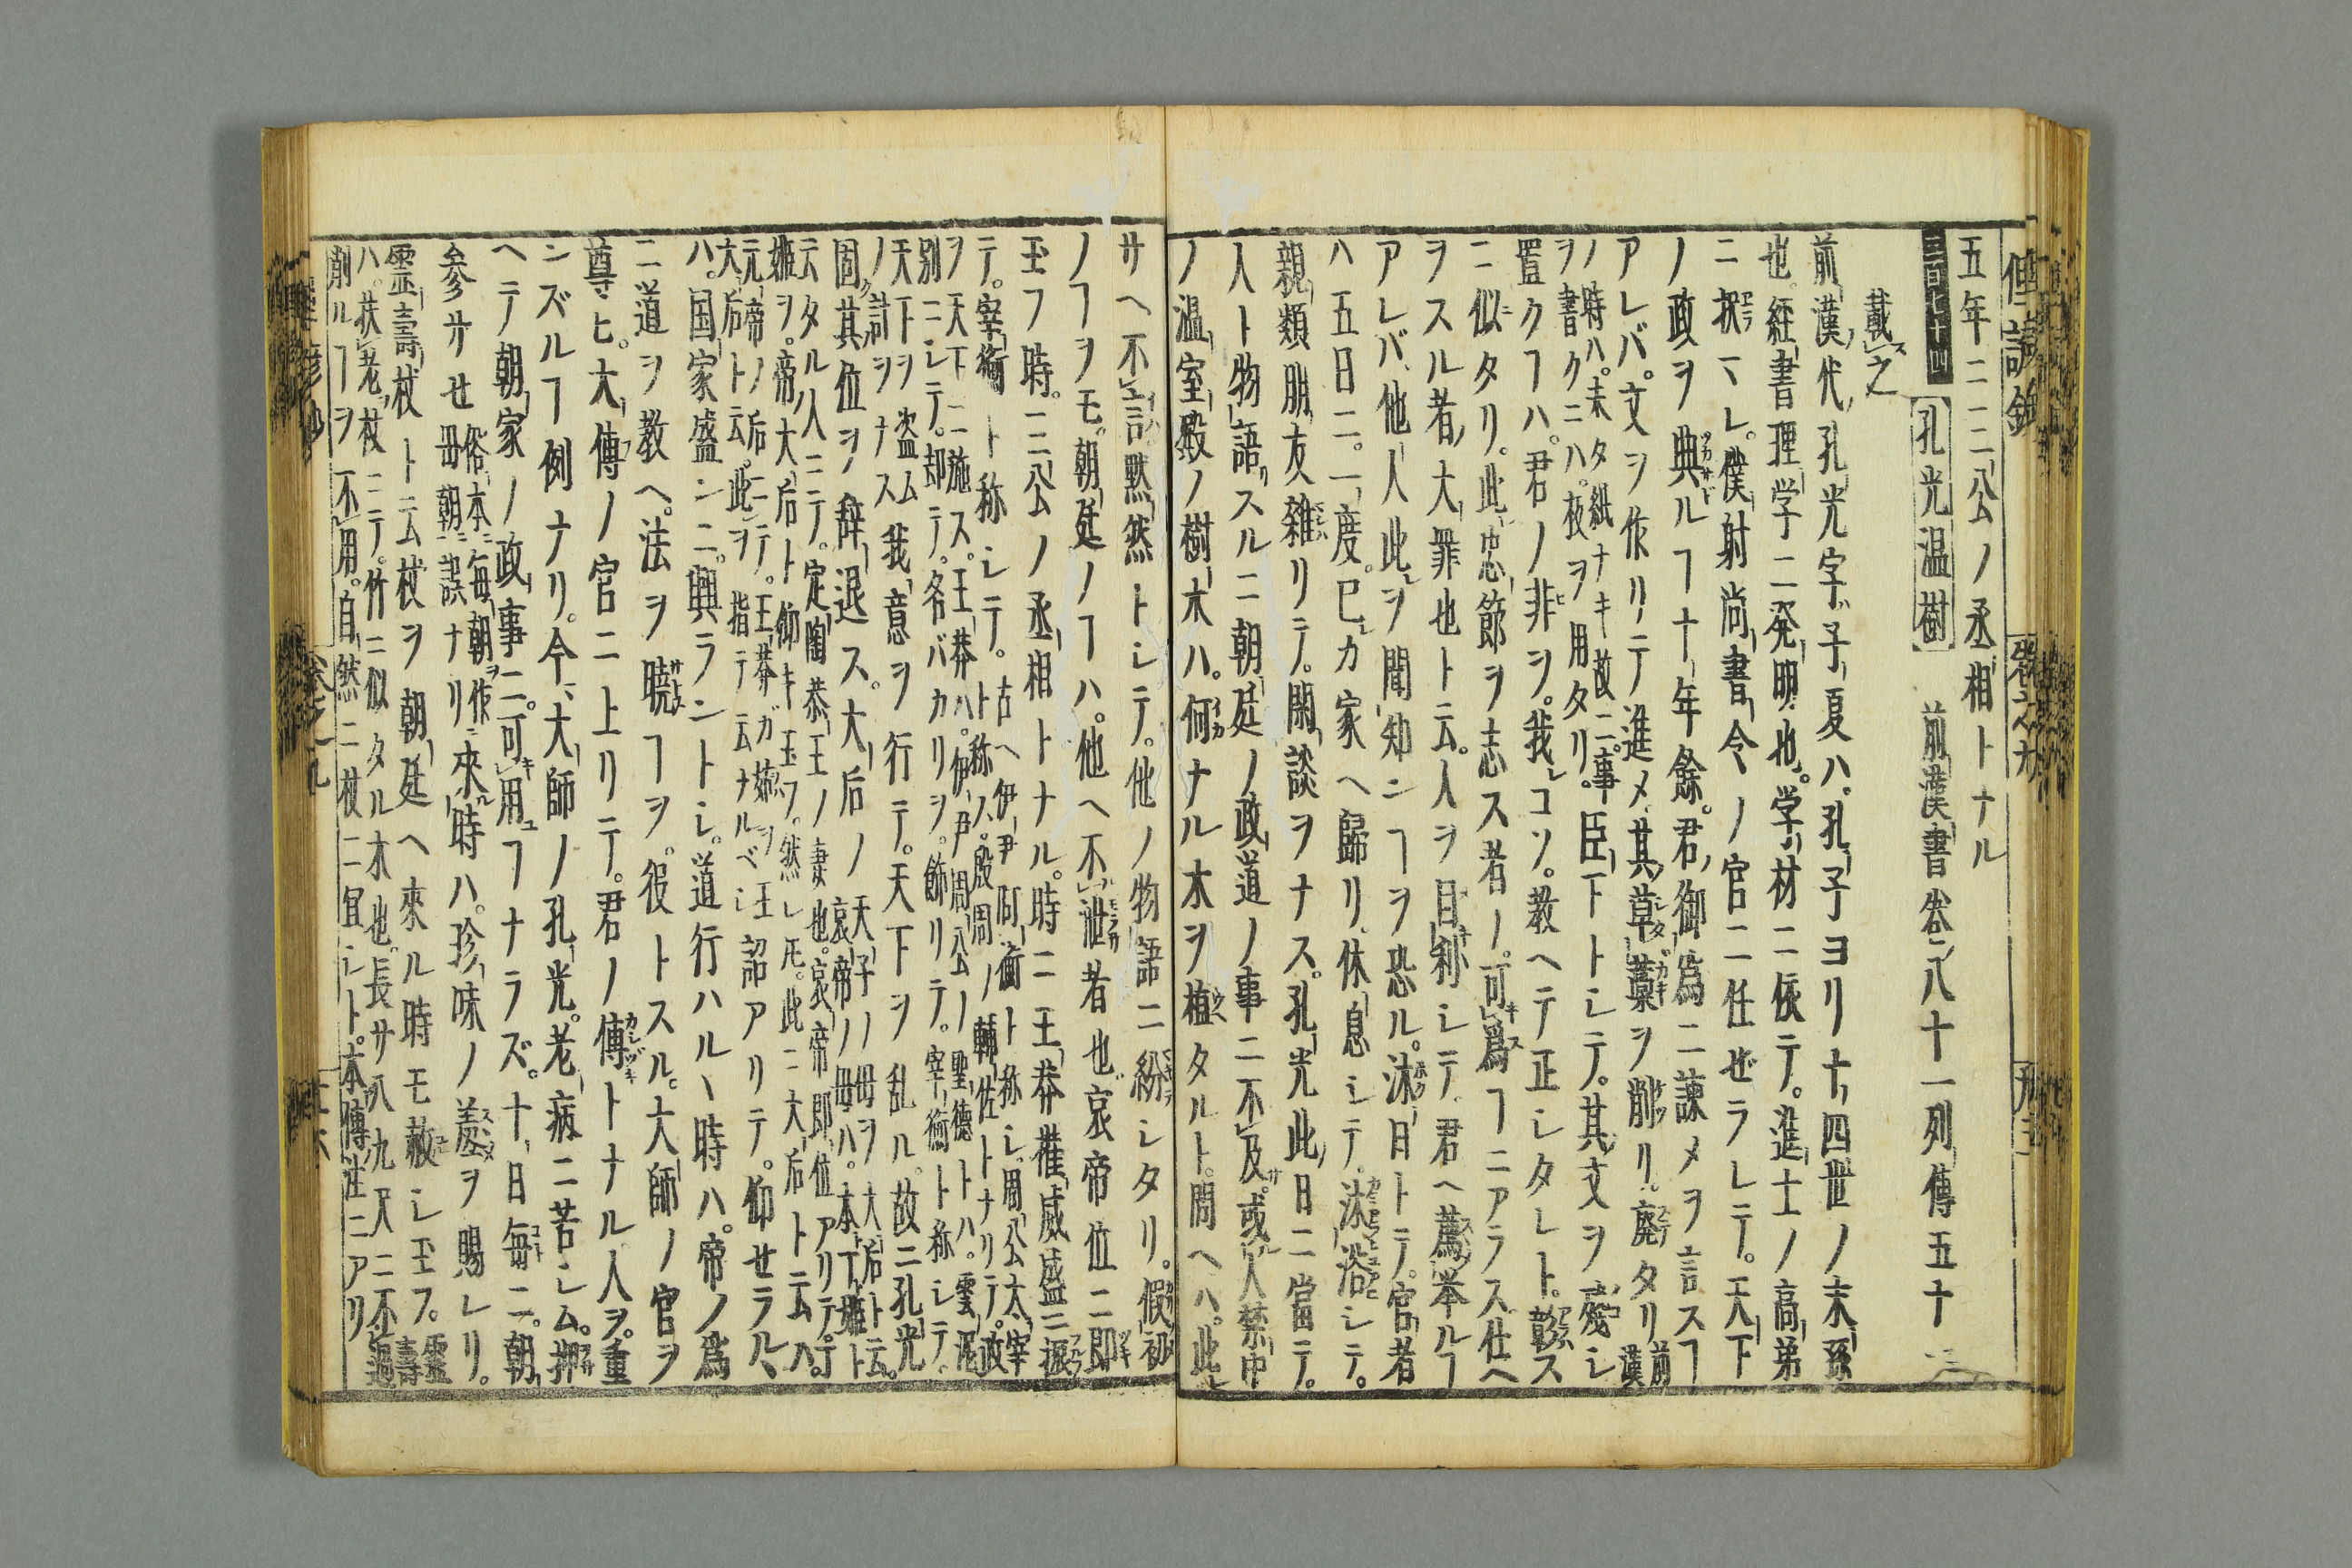 五年ニ二公ノ丞相トナル
戴之
三百七十四 孔光温樹 前漢書巻ノ八十一列傳五十一
前漢ノ代ノ孔光字ハ子夏ハ孔子ヨリ十四世ノ末孫
也。經書理学ニ発明也。学材ニ依テ。進士ノ高弟
ニ擢マレ。僕射尚書令ノ官ニ任ぜラレテ。天下
ノ政ヲ典ルヿ十年餘。君ノ御爲ニ諫メヲ言スヿ
アレバ。文ヲ作リテ進メ。其ノ草藁ヲ削リ。廃タリ 前漢
ノ時ハ。未タ紙ナキ故ニ。事
ヲ書クニハ。板ヲ用タリ。 臣下トシテ。其文ヲ殘シ
置クヿハ。君ノ非ヲ。我レコソ。教ヘテ正シタレト。彰ス
ニ似タリ。此忠節ヲ志ス者ノ。可爲ヿニアラス仕ヘ
ヲスル者ノ大罪也ト云。人ヲ自利シテ君ヘ薦挙ルヿ
アレバ他人此ヲ聞知ンヿヲ恐ル。沐日トテ。官者
ハ五日ニ。一度。已レカ家ヘ歸リ。休息シテ。沐浴シテ。
親類朋友雜リテ。閑談ヲナス。孔光此ノ日ニ當テ。
人ト物語スルニ朝廷ノ政道ノ事ニ不及。或人禁中
ノ温室殿ノ樹木ハ。何ナル木ヲ植タルト。問ヘハ。此レ
サヘ不言。黙然トシテ。他ノ物語ニ紛シタリ。假初
ノヿヲモ。朝廷ノヿハ。他ヘ不泄者也。哀帝位ニ即
玉フ時。三公ノ丞相トナル。時ニ王莽権威盛ニ振
テ。宰衡ト称シテ。 古ヘ伊尹阿衡ト称シ。周公太宰
ト称ス。殷周ノ輔佐トナリテ。政
ヲ天下ニ施ス。王莽ハ。伊尹周公ノ聖徳トハ。雲泥
別ニシテ。却テ。名バカリヲ。飾リテ。宰衡ト称シテ。
天下ヲ盗ム
ノ計ヲナス 我意ヲ行テ。天下ヲ乱ル。故ニ孔光
固ク其位ヲ辞退ス。大后ノ 天子ノ母ヲ大后ト云。
哀帝ノ母ハ。本丁姫ト
云タル人ニテ。定陶恭王ノ妻也。哀帝即位アリテ。丁
姫ヲ。帝大后ト仰キ玉フ。然レ𪜈。此ニ大后ト云ハ。
元帝ノ后ニテ。王莽ガ姑ヲ
大后ト云。此ヲ。指テ云ナルベシ 王詔アリテ。仰せラル丶
ハ。国家盛ンニ。興ラントシ。道行ハル丶時ハ。帝ノ爲
ニ道ヲ教ヘ。法ヲ曉ヿヲ。役トスル。大師ノ官ヲ
尊ヒ。大傅ノ官ニ上リテ。君ノ傅トナル人ヲ。重
ンズルヿ例ナリ。今大師ノ孔光。老病ニ苦シム。押
ヘテ朝家ノ政事ニ。可用ヿナラズ。十日毎ニ。朝
参サせ 俗本ニ毎朝ヲ作
毋朝ニ誤ナリ 來時ハ。珍味ノ羞ヲ賜レリ。
霊壽杖ト云杖ヲ朝廷ヘ來ル時モ赦シ玉フ。 霊壽
ハ扶老杖ニテ。竹ニ似タル木也。長サ八九尺ニ不過
削ルヿヲ不用。自然ニ杖ニ宜シト。本傳注ニアリ